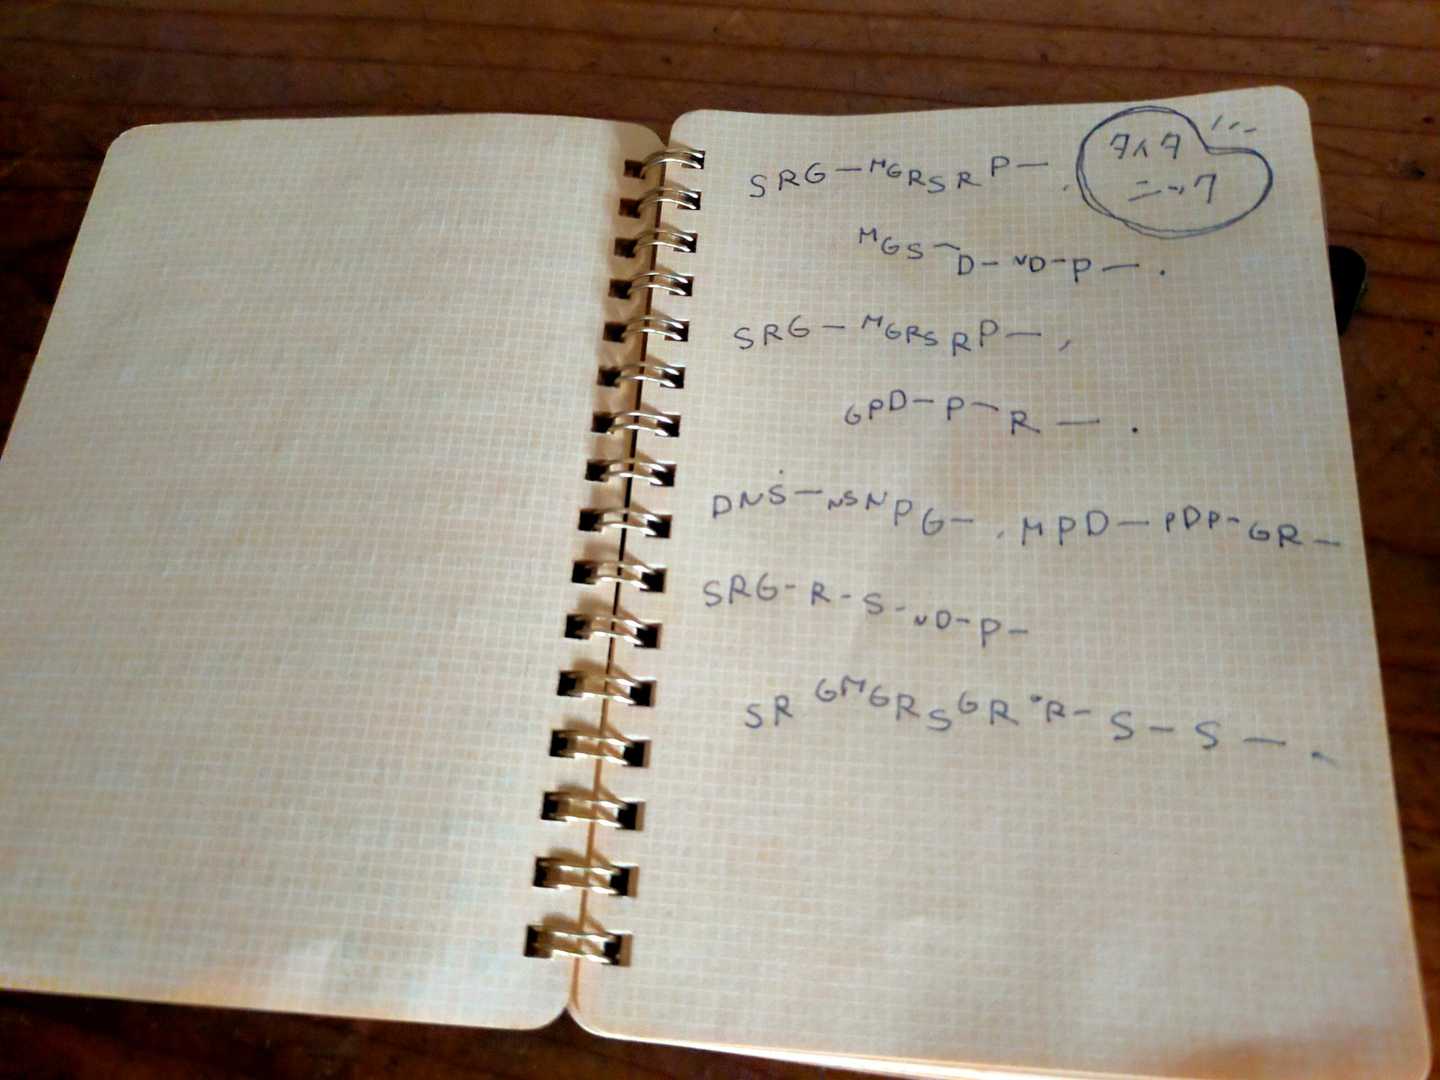 SRG — MGRSRP — ,
7x7
= → 7
MGS — D — ND — P — .
SRG — MGRSRP — ,
GPD — P — R — .
DNṠ — NSNPG — , MPD — PDP — GR —
SRG - R - S - ND - P -
SR GMGRSGR R - S - S — .